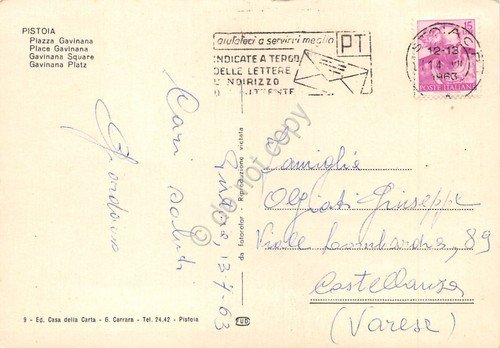 PISTOIA
Piazza Gavinana
Place Gavinana
Gavinana Square
Gavinana Platz
aiutateci a servirvi meglio
PT
INDICATE A TERGO
DELLE LETTERE
INDIRIZZO
MITTENTE
PISTOIA C.P.
12-13
14 VII
1963
15
POSTE ITALIANE
Cari saluti
13-7-63
Famiglia
Olgiati Giuseppe
Viale Lombardia, 89
Castellanza
(Varese)
da Fotocolor Riproduzione vietata
9 - Ed. Casa della Carta - G. Carrara - Tel. 24.42 - Pistoia
do not copy